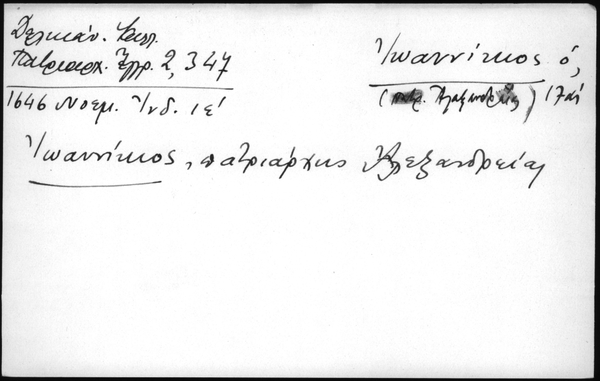 Δελικάν. Καλλ.
Πατριαρχ. Ἔγγρ. 2, 347
1646 Νοεμ. Ἰνδ. ιε΄
Ἰωαννίκιος ὁ,
(πατρ. Ἀλεξανδρείας) 17αι
Ἰωαννίκιος, πατριάρχης Ἀλεξανδρείας